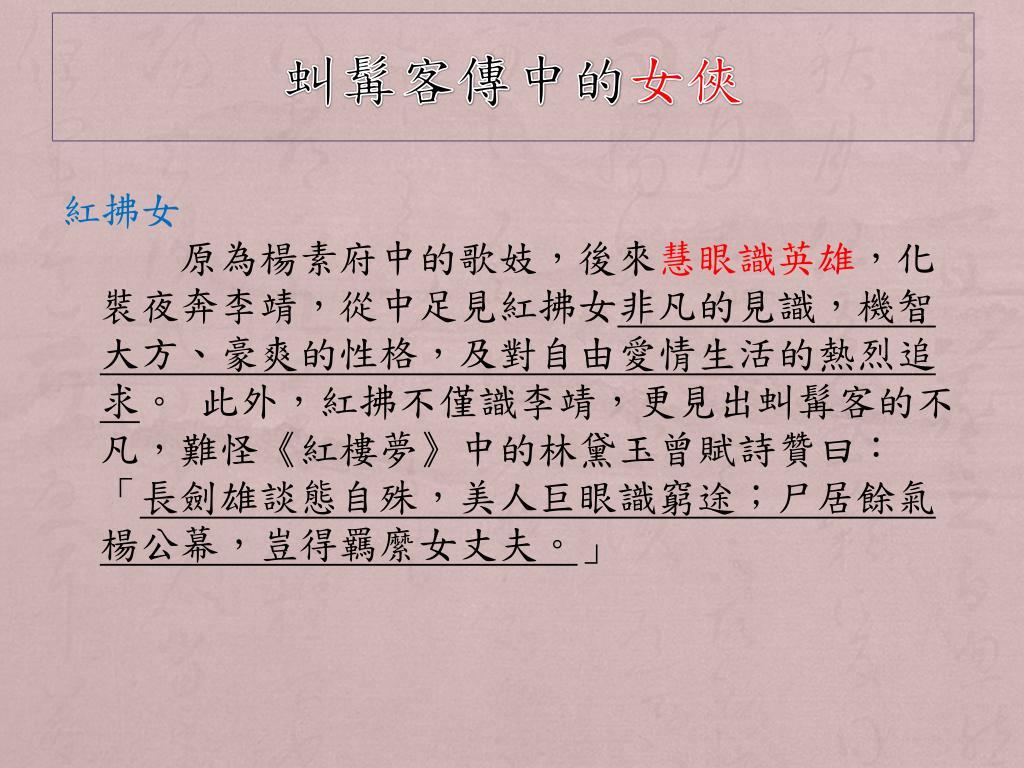 虯髯客傳中的女俠
紅拂女
原為楊素府中的歌妓，後來慧眼識英雄，化
裝夜奔李靖，從中足見紅拂女非凡的見識，機智
大方、豪爽的性格，及對自由愛情生活的熱烈追
求。 此外，紅拂不僅識李靖，更見出虯髯客的不
凡，難怪《紅樓夢》中的林黛玉曾賦詩贊曰：
「長劍雄談態自殊，美人巨眼識窮途；尸居餘氣
楊公幕，豈得羈縻女丈夫。」